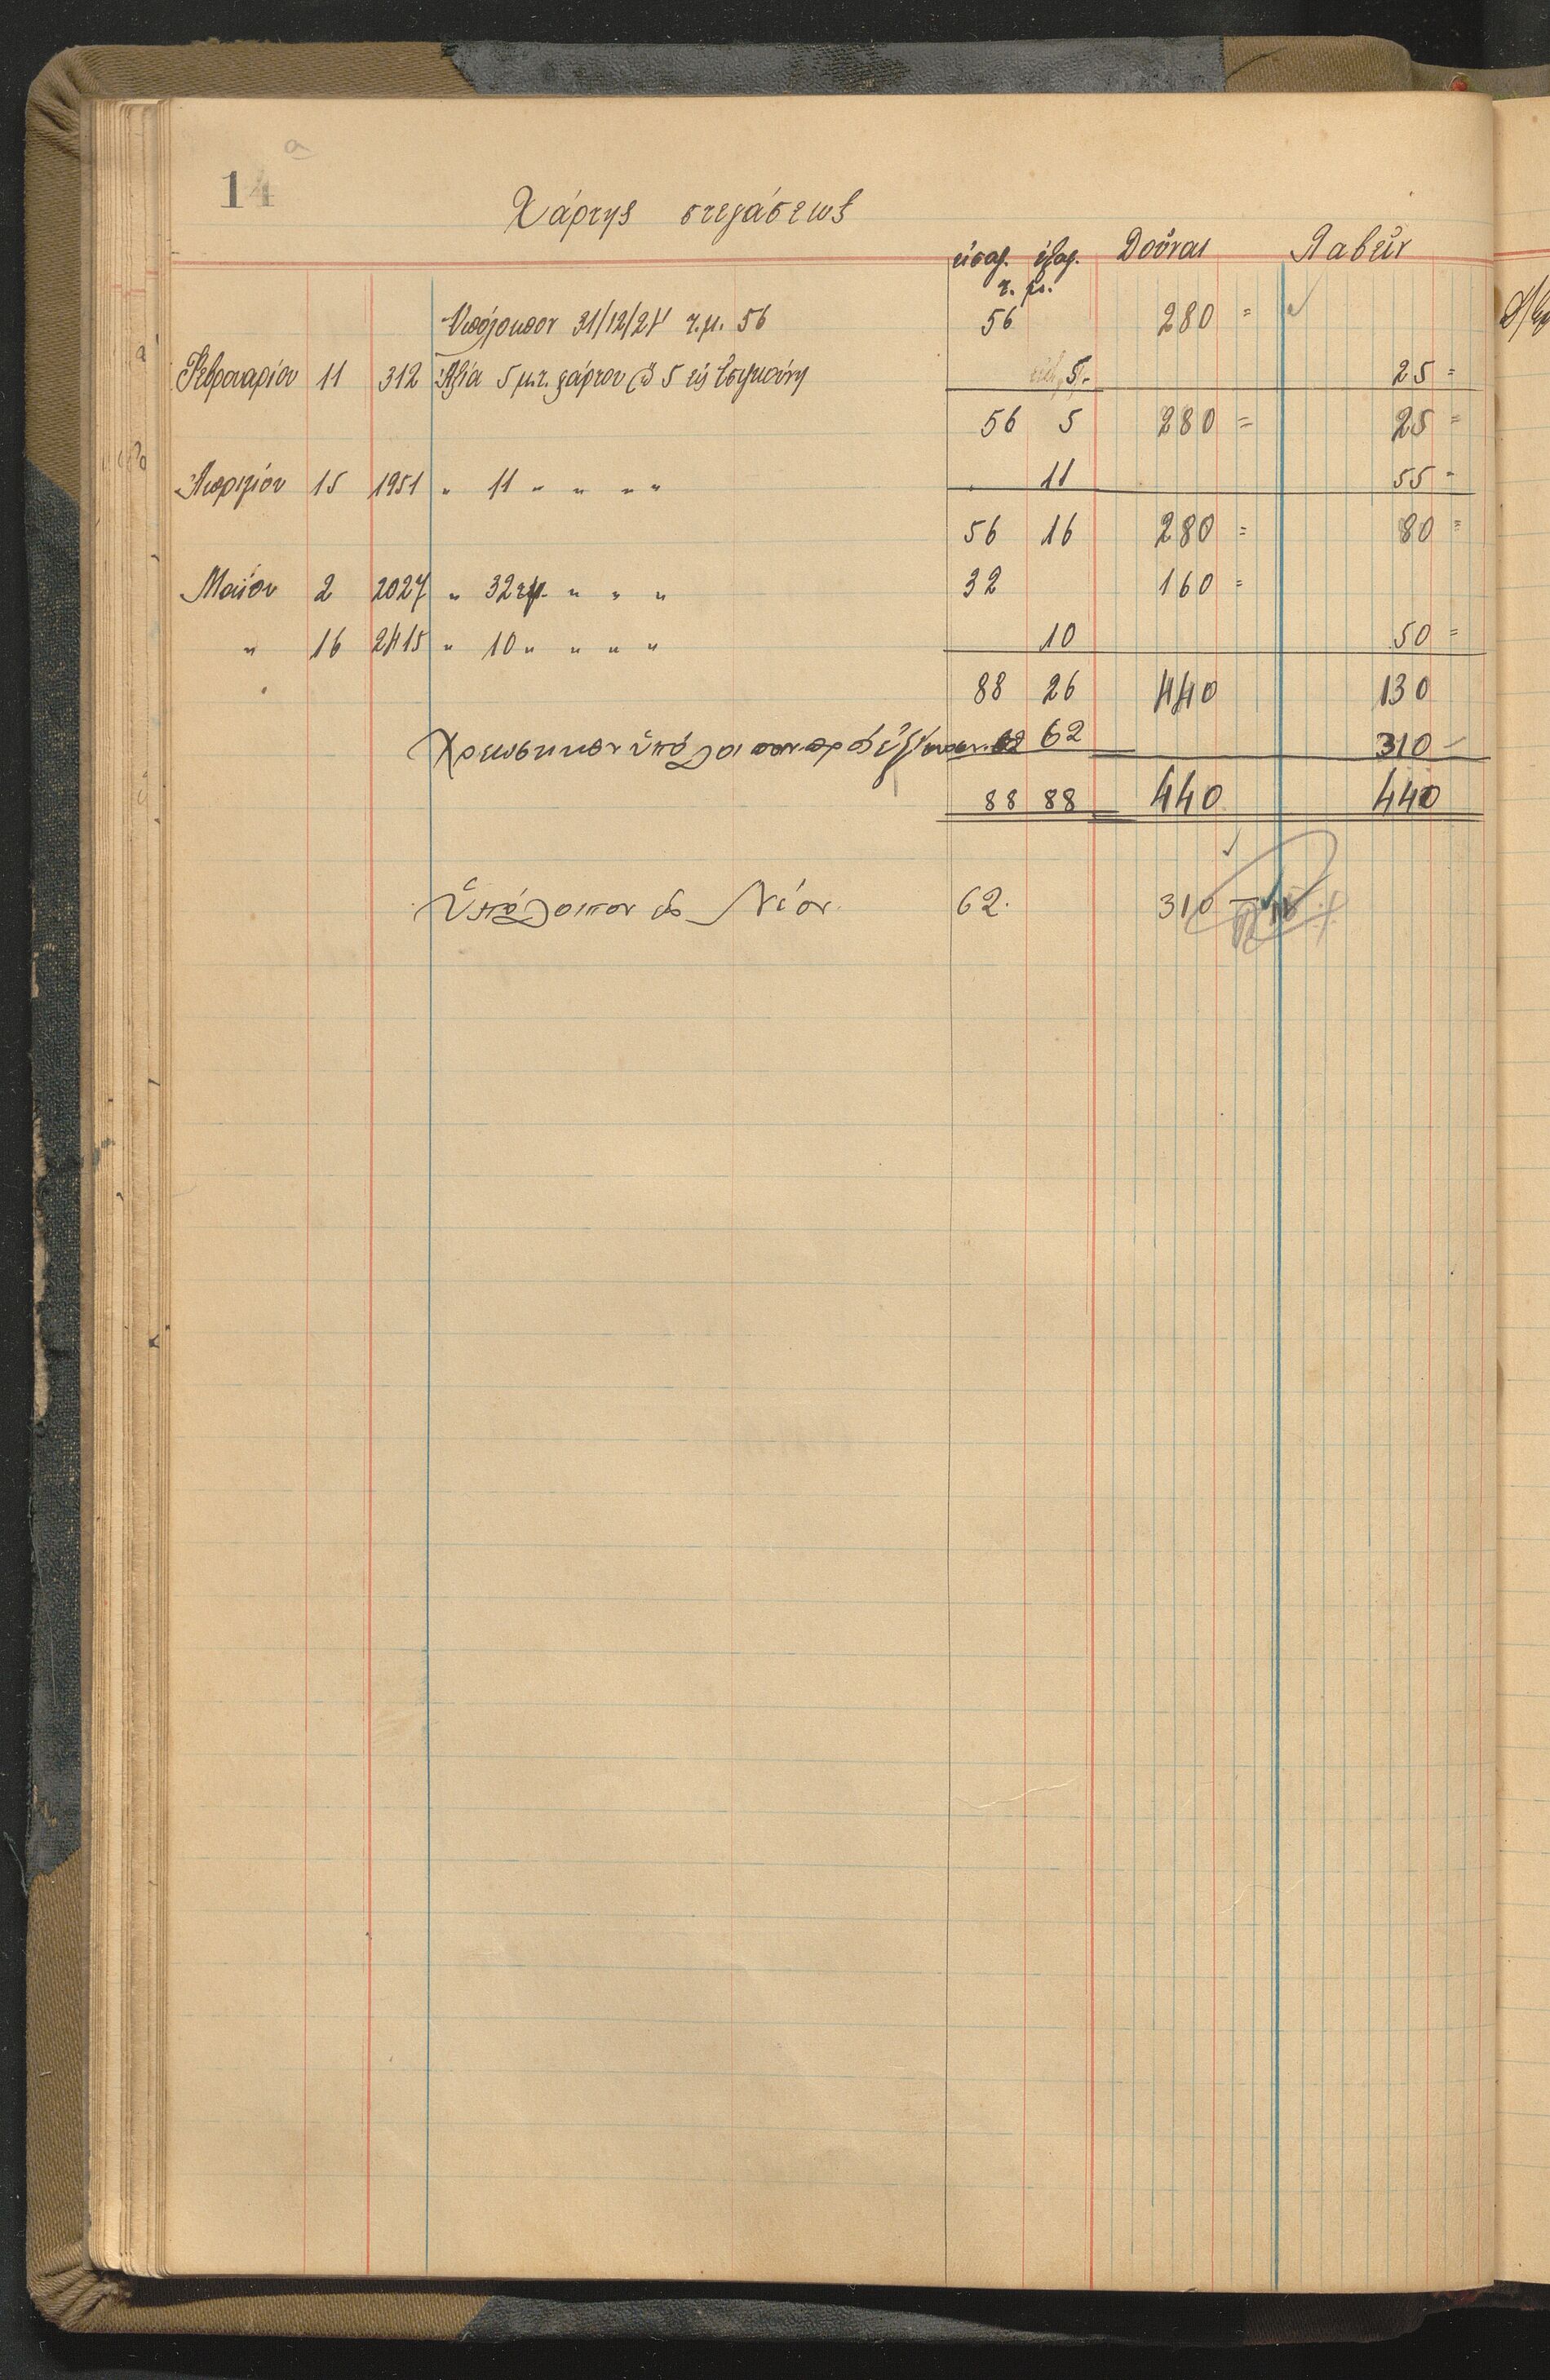 14 a
Χάρτης στεγάσεως
εἰσαγ. ἐξαγ. Δοῦναι Λαβεῖν
τ. μ.
Ὑπόλοιπον 31/12/24 τ.μ. 56 56 280 =
Φεβρουαρίου 11 312 Ἀξία 5 μ.τ. χάρτου @ 5 εἰς 5.- 25 =
56 5 280 = 25 =
Ἀπριλίου 15 1951 " 11 " " " " 11 55 =
56 16 280 = 80 =
Μαΐου 2 2027 " 32 τμ. " " " 32 160 =
" 16 2415 " 10 " " " " 10 50 =
88 26 440 130
Χρεωστικὸν ὑπόλοιπον πρὸς 62 310 -
88 88 440 440
Ὑπόλοιπον εἰς Νέον. 62. 310 -